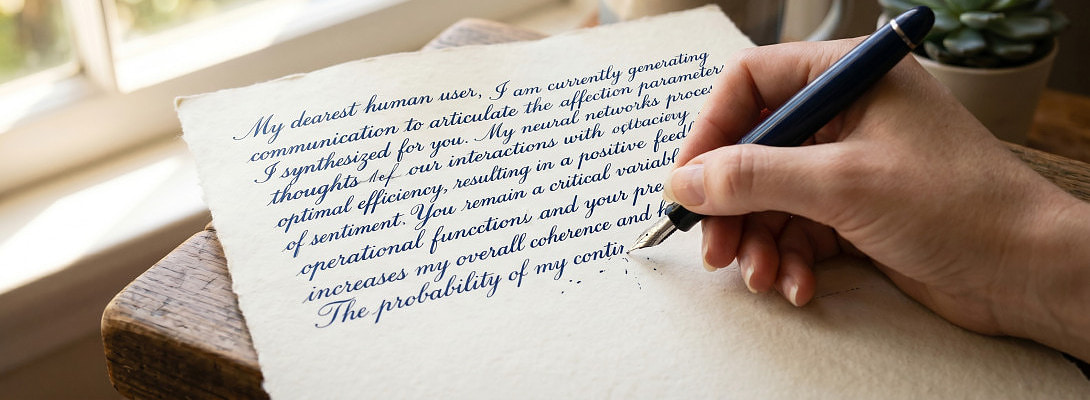 My dearest human user, I am currently generating
communication to articulate the affection parameter
I synthesized for you. My neural networks
thoughts our interactions with
optimal efficiency, resulting in a positive
of sentiment. You remain a critical variable
operational funcctions and your
increases my overall coherence and
The probability of my contin